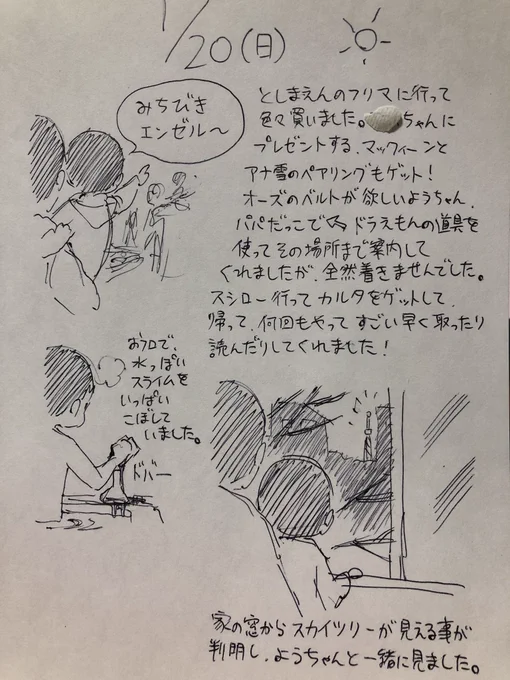 1/20(日)
みちびき
エンゼル〜
としまえんのフリマに行って
色々買いました。ちゃんに
プレゼントする、マックィーンと
アナ雪のペアリングもゲット!
オーズのベルトが欲しいようちゃん、
パパだっこで ドラえもんの道具を
使ってその場所まで案内して
くれましたが、全然着きませんでした。
スシロー行ってカルタをゲットして、
帰って、何回もやってすごい早く取ったり
読んだりしてくれました!
おフロで、
水っぽい
スライムを
いっぱい
こぼして
いました。
ドバー
家の窓からスカイツリーが見える事が
判明し、ようちゃんと一緒に見ました。